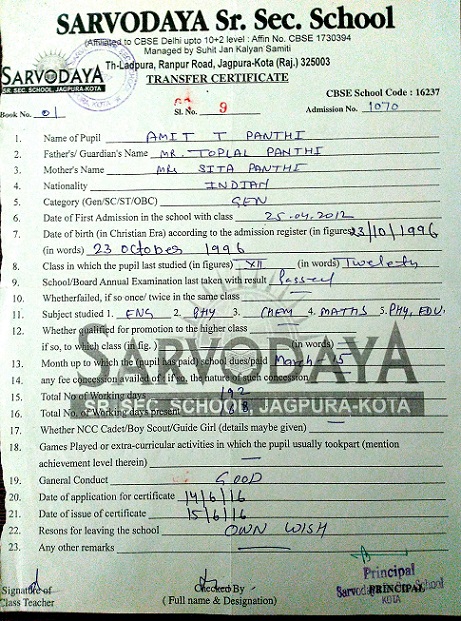 SARVODAYA Sr. Sec. School
(Affliated to CBSE Delhi upto 10+2 level : Affin No. CBSE 1730394
Managed by Suhit Jan Kalyan Samiti
Th-Ladpura, Ranpur Road, Jagpura-Kota (Raj.) 325003
SARVODAYA
SR. SEC. SCHOOL, JAGPURA-KOTA
TRANSFER CERTIFICATE
CBSE School Code : 16237
Book No. 01 Sl. No. 9 Admission No. 1070
1. Name of Pupil AMIT T PANTHI
2. Father's/ Guardian's Name MR. TOPLAL PANTHI
3. Mother's Name MRs SITA PANTHI
4. Nationality INDIAN
5. Category (Gen/SC/ST/OBC) GEN
6. Date of First Admission in the school with class 25.04.2012
7. Date of birth (in Christian Era) according to the admission register (in figures) 23/10/1996
(in words) 23 October 1996
8. Class in which the pupil last studied (in figures) XII (in words) Twelfth
9. School/Board Annual Examination last taken with result Passed
10. Whetherfailed, if so once/ twice in the same class
11. Subject studied 1. ENG 2. PHY 3. CHEM 4. MATHS 5. PHY, EDU.
12. Whether qualified for promotion to the higher class
if so, to which class (in fig. ) (in words)
SARVODAYA
SR. SEC. SCHOOL, JAGPURA-KOTA
13. Month up to which the (pupil has paid) school dues/paid March 15
14. any fee concession availed of : if so, the nature of such concession
15. Total No. of Working days 192
16. Total No. of Working days present 188
17. Whether NCC Cadet/Boy Scout/Guide Girl (details maybe given) —
18. Games Played or extra-curricular activities in which the pupil usually tookpart (mention
achievement level therein) —
19. Ganeral Conduct GOOD
20. Date of application for certificate 14/6/16
21. Date of issue of certificate 15/6/16
22. Resons for leaving the school OWN WISH
23. Any other remarks —
Signature of
Class Teacher
Checked By
( Full name & Designation)
PRINCIPAL
Principal
Sarvodaya Sr. Sec. School
KOTA